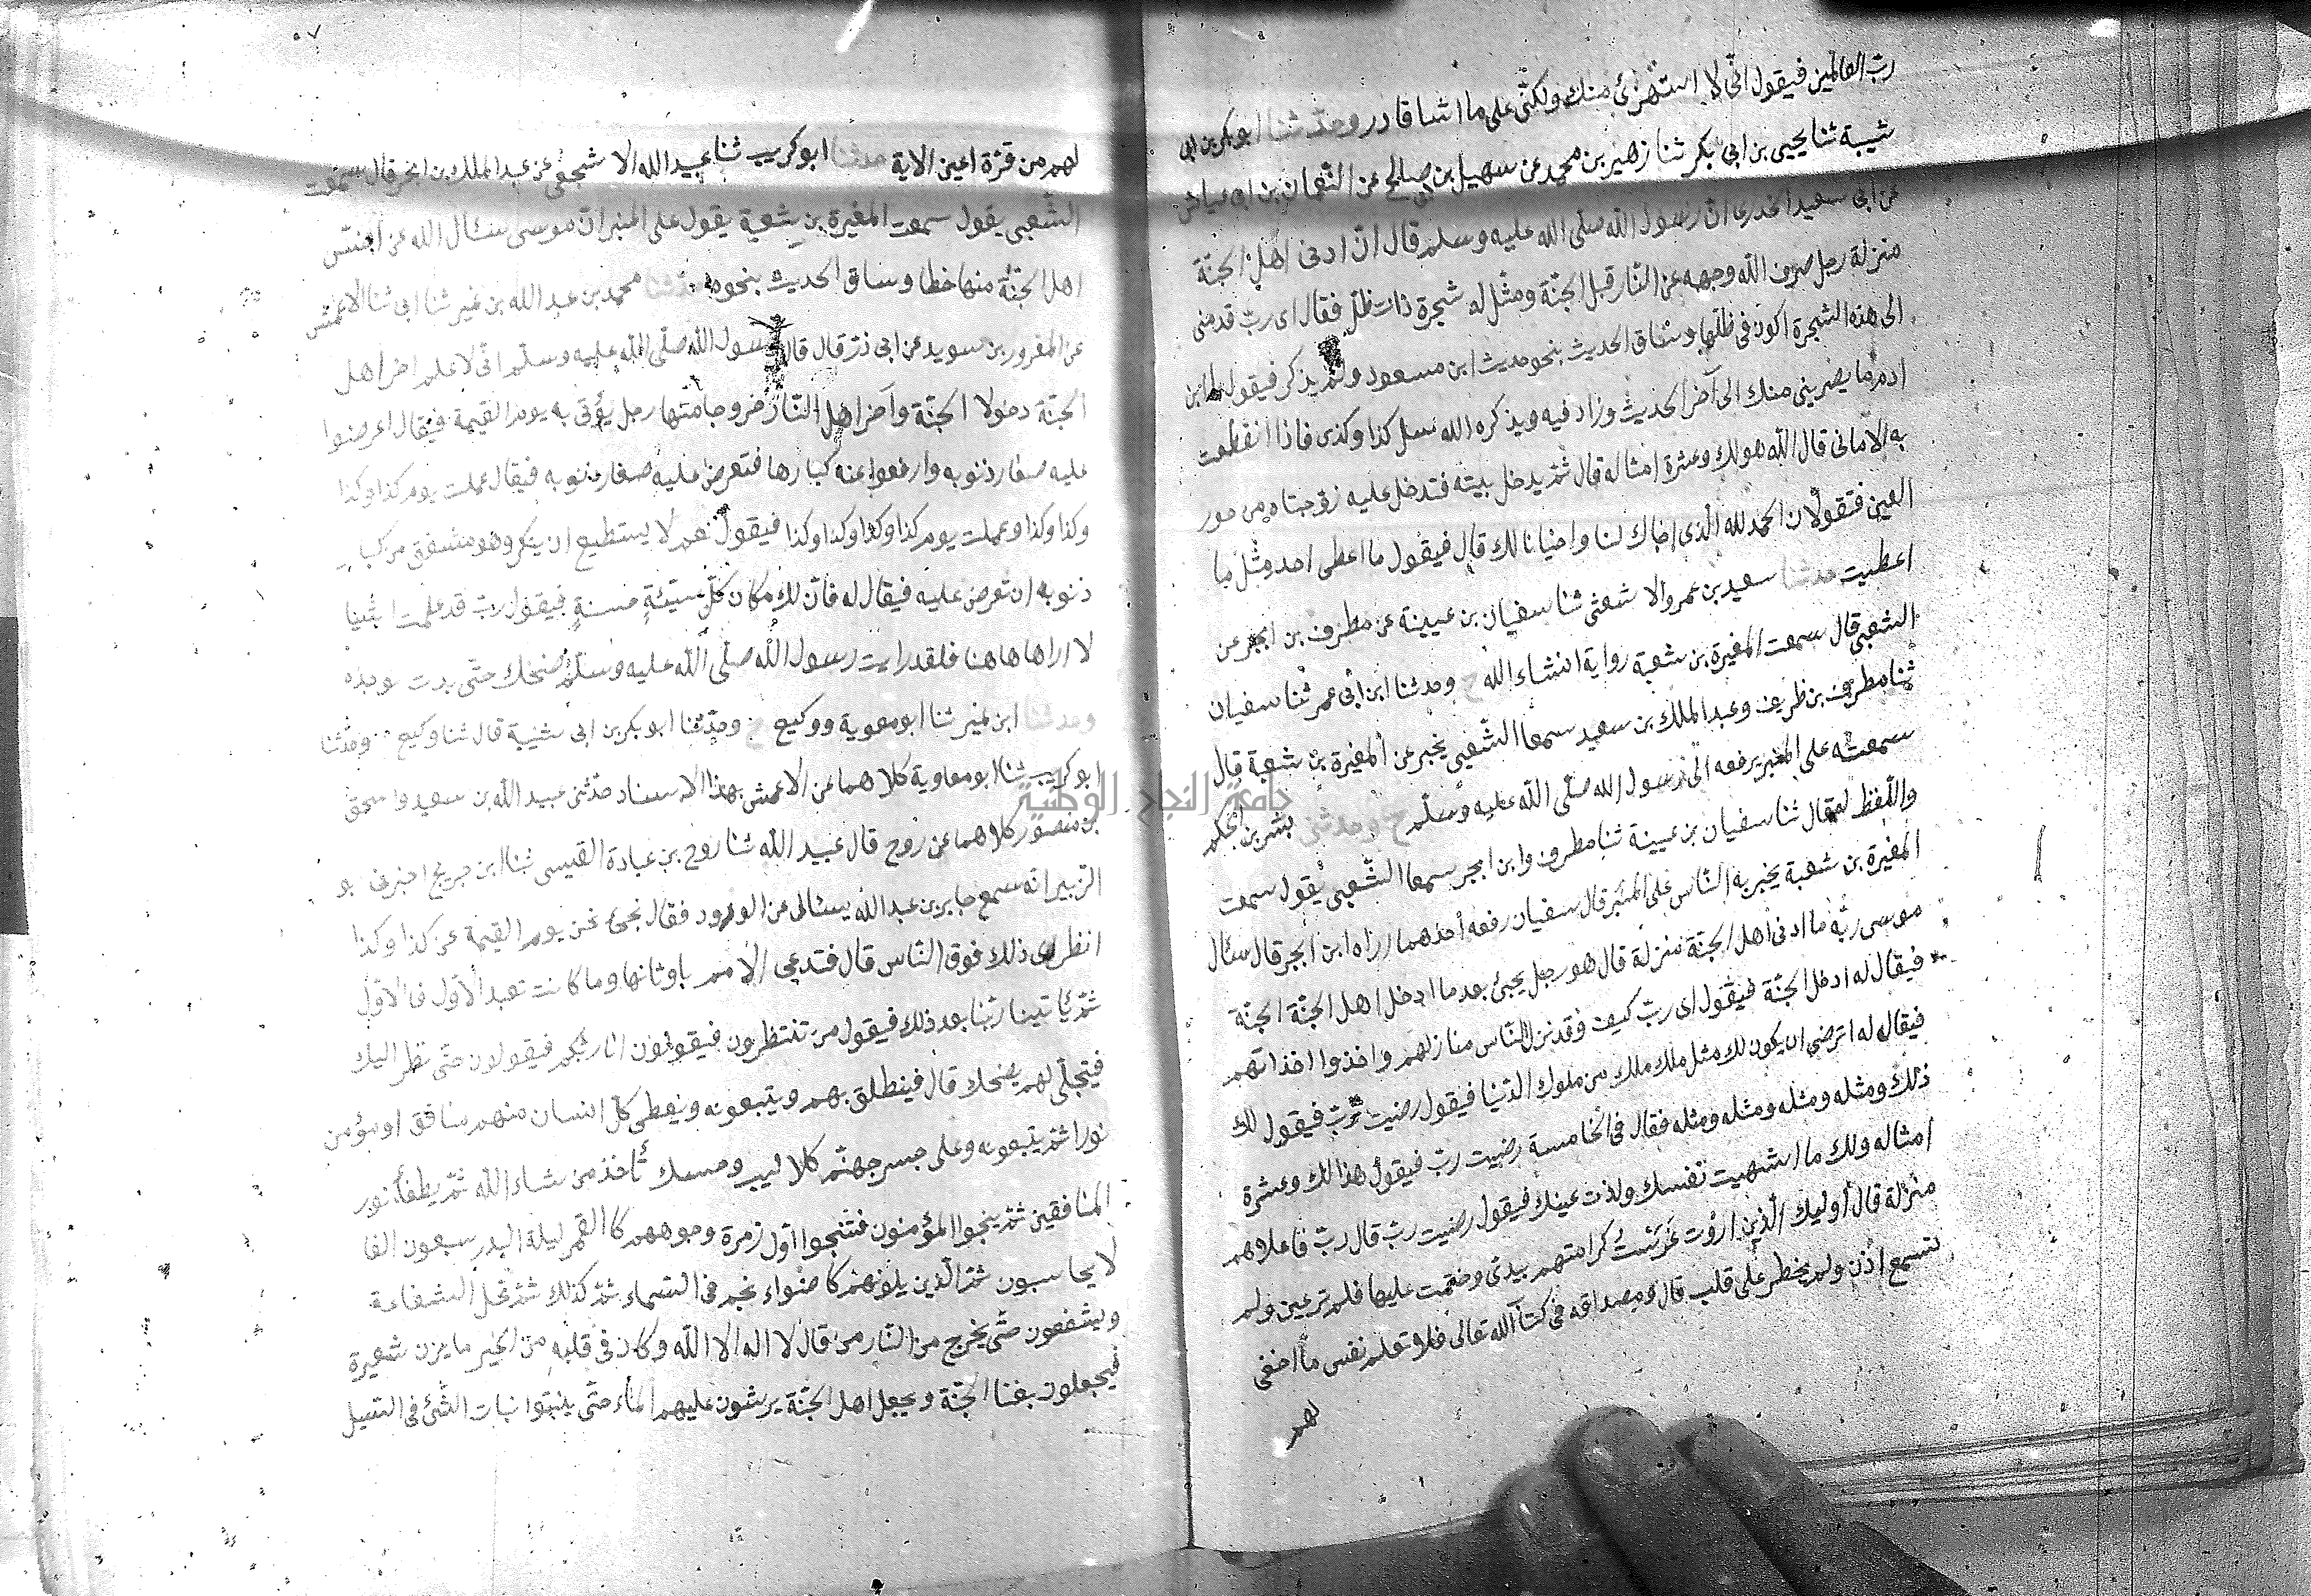 رب العالمين فيقول انى لا استهزئ منك ولكنى على ما اشا قادر وحدثنا ابو بكر بن ابى
شيبة ثنا يحيى بن ابى بكر ثنا زهير بن محمد عن سهيل بن ابى صالح عن النعمان بن ابى عياش
عن ابى سعيد الخدرى ان رسول الله صلى الله عليه وسلم قال ان ادنى اهل الجنة
منزلة رجل صرف الله وجهه عن النار قبل الجنة ومثل له شجرة ذات ظل فقال اى رب قدمنى
الى هذه الشجرة اكون فى ظلها وساق الحديث بنحو حديث ابن مسعود ولم يذكر فيقول يا ابن
ادم ما يصرينى منك الى آخر الحديث وزاد فيه ويذكره الله سل كذا وكذى فاذا انقطعت
به الامانى قال الله هو لك وعشرة امثاله قال ثم يدخل بيته فتدخل عليه زوجتاه من حور
العين فتقولان الحمد لله الذى احياك لنا واحيانا لك قال فيقول ما اعطى احد مثل ما
اعطيت حدثنا سعيد بن عمرو الاشعثى ثنا سفيان بن عيينة عن مطرف بن ابجر عن
الشعبى قال سمعت المغيرة بن شعبة رواية انشاء الله ح وحدثنا ابن ابى عمر ثنا سفيان
ثنا مطرف بن ظريف وعبد الملك بن سعيد سمعا الشعبى يخبر عن المغيرة بن شعبة قال
سمعته على المنبر يرفعه الى رسول الله صلى الله عليه وسلم ح وحدثنى بشر بن الحكم
واللفظ له قال ثنا سفيان بن عيينة ثنا مطرف وابن ابجر سمعا الشعبى يقول سمعت
المغيرة بن شعبة يخبر به الناس على المنبر قال سفيان رفعه احدهما اراه ابن ابجر قال سئال
موسى ربه ما ادنى اهل الجنة منزلة قال هو رجل يجئ بعد ما ادخل اهل الجنة الجنة
فيقال له ادخل الجنة فيقول اى رب كيف وقد نزل الناس منازلهم واخذوا اخذاتهم
فيقال له اترضى ان يكون لك مثل ملك ملك من ملوك الدنيا فيقول رضيت رب فيقول لك
ذلك ومثله ومثله ومثله ومثله فقال فى الخامسة رضيت رب فيقول هذا لك وعشرة
امثاله ولك ما اشتهيت نفسك ولذت عينك فيقول رضيت رب قال رب فاعلاهم
منزلة قال أوليك الذين اردت غرست كرامتهم بيدى وختمت عليها فلم تر عين ولم
تسمع اذن ولم يخطر على قلب قال ومصداقه فى كتاب الله تعالى فلا تعلم نفس ما اخفى
لهم
٥٧
لهم من قرة اعين الاية حدثنا ابو كريب ثنا عبيد الله الاشجعى عن عبد الملك بن ابجر قال سمعت
الشعبى يقول سمعت المغيرة بن شعبة يقول على المنبر ان موسى سئال الله عن اخس
اهل الجنة منها حظا وساق الحديث بنحوه حدثنا محمد بن عبد الله بن نمير ثنا ابى ثنا الاعمش
عن المعرور بن سويد عن ابى ذر قال قال رسول الله صلى الله عليه وسلم انى لا علم اخر اهل
الجنة دخولا الجنة وآخر اهل النار خروجا منها رجل يؤتى به يوم القيمة فيقال اعرضوا
عليه صغار ذنوبه وارفعوا عنه كبارها فتعرض عليه صغار ذنوبه فيقال عملت يوم كذا وكذا
وكذا وكذا وعملت يوم كذا وكذا وكذا وكذا فيقول نعم لا يستطيع ان ينكر وهو مشفق من كبار
ذنوبه ان تعرض عليه فيقال له فان لك مكان كل سيئة حسنة فيقول رب قد عملت اشيا
لا اراها ها هنا فلقد رايت رسول الله صلى الله عليه وسلم ضحك حتى بدت نواجذه
وحدثنا ابن نمير ثنا ابو معوية ووكيع ح وحدثنا ابو بكر بن ابى شيبة قال ثنا وكيع ح وحدثنا
ابو كريب ثنا ابو معاوية كلاهما عن الاعمش بهذا الاسناد حدثنى عبيد الله بن سعيد واسحق
بن منصور كلاهما عن روح قال عبيد الله ثنا روح بن عبادة القيسى ثنا ابن جريج اخبرنى ابو
الزبير انه سمع جابر بن عبد الله يسئالى عن الورود فقال نجئ نحن يوم القيمة عن كذا وكذا
انظر اى ذلك فوق الناس قال فتدعى الامم باوثانها وما كانت تعبد الاول فالاول
ثم يأتينا ربنا بعد ذلك فيقول من تنتظرون فيقولون انا ربكم فيقولون حتى نظر اليك
فيتجلى لهم يضحك قال فينطلق بهم ويتبعونه ويعطى كل انسان منهم منافق او مؤمن
نورا ثم يتبعونه وعلى جسر جهنم كلاليب وحسك تأخذ من شاء الله ثم يطفأ نور
المنافقين ثم ينجوا المؤمنون فتنجوا اول زمرة وجوههم كالقمر ليلة البدر سبعون الفا
لا يحاسبون ثم الذين يلونهم كاضواء نجم فى السماء ثم كذلك ثم تحل الشفاعة
ويشفعون حتى يخرج من النار من قال لا اله الا الله وكان فى قلبه من الخير ما يزن شعيرة
فيجعلون بفنا الجنة ويجعل اهل الجنة يرشون عليهم الماء حتى ينبتوا نبات الشئ فى السيل
جامعة النجاح الوطنية